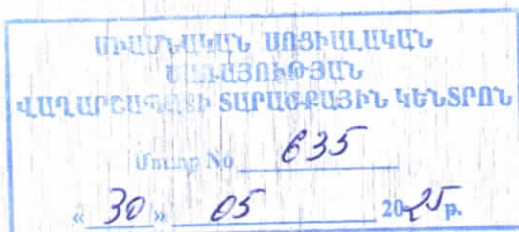 ՄԻԱՍՆԱԿԱՆ ՍՈՑԻԱԼԱԿԱՆ
ԾԱՌԱՅՈՒԹՅԱՆ
ՎԱՂԱՐՇԱՊԱՏԻ ՏԱՐԱԾՔԱՅԻՆ ԿԵՆՏՐՈՆ
Մուտք No 635
« 30 » 05 2025թ.